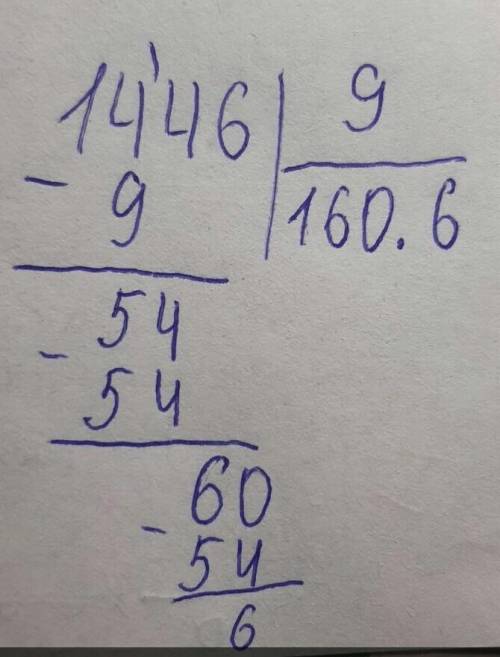 1446 9
- 9 160.6
54
- 54
60
- 54
6